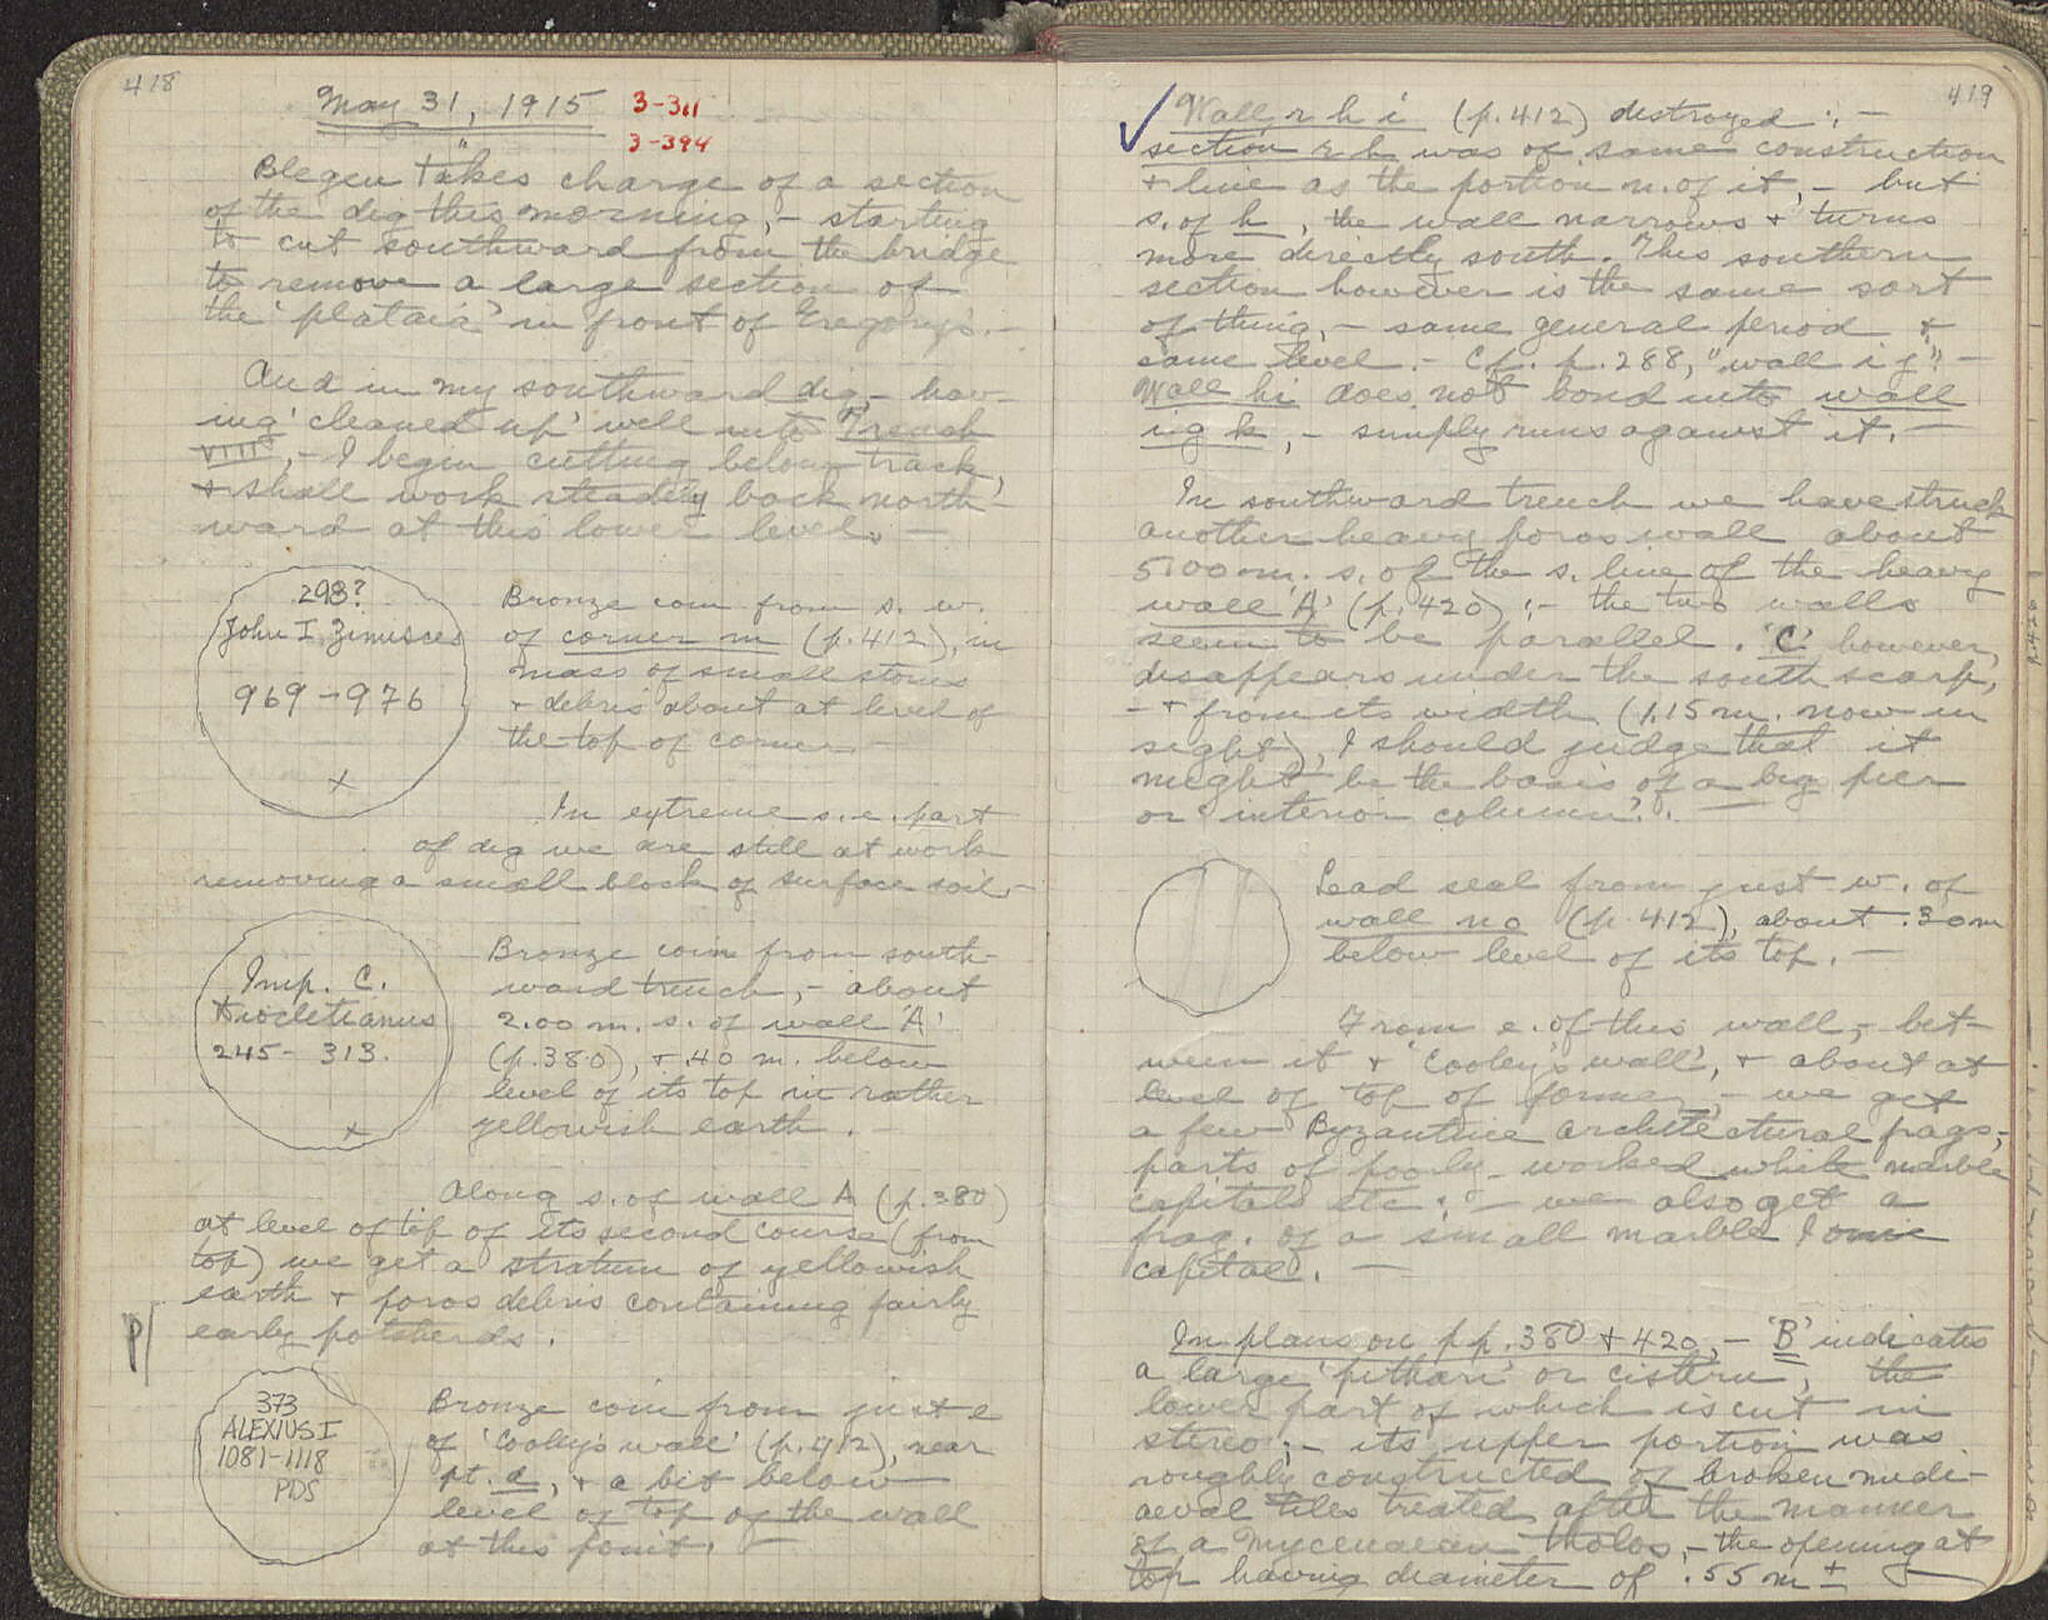 418
May 31, 1915
3-311
3-394
Blegen takes charge of a section
of the dig this morning, – starting
to cut southward from the bridge
to remove a large section of
the 'plataia' in front of Gregory's. –
And in my southward dig, – hav-
ing 'cleaned up' well into Trench
VIII, – I begin cutting below track,
+ shall work steadily back north-
ward at this lower level. –
298?
John I Zimisces
969-976
x
Bronze coin from s. w.
of corner m (p.412), in
mass of small stones
+ debris about at level of
the top of corner. –
In extreme s.e. part
of dig we are still at work
removing a small block of surface soil –
Imp. C.
Diocletianus
245- 313.
x
Bronze coin from south-
ward trench, – about
2.00 m. s. of wall 'A'
(p.380), + .40 m. below
level of its top in rather
yellowish earth. –
Along s. of wall A (p.380)
at level of top of its second course (from
top) we get a stratum of yellowish
earth + poros debris containing fairly
early potsherds.
P/
373
ALEXIUS I
1081-1118
PDS
Bronze coin from just e
of 'Cooley's wall' (p.412), near
pt. d, + a bit below
level of top of the wall
at this point. –
419
✓ Wall r h i (p.412) destroyed :, –
section r h was of same construction
+ line as the portion n. of it, – but
s. of h, the wall narrows + turns
more directly south. This southern
section however is the same sort
of thing, – same general period +
same level. – Cf. p.288, "wall i g" –
Wall hi does not bond into wall
i g k, – simply runs against it. –
In southward trench we have struck
another heavy poros wall about
5.00 m. s. of the s. line of the heavy
wall 'A' (p.420) :- the two walls
seem to be parallel. 'C' however,
disappears under the south scarp,
– + from its width (1.15 m. now in
sight), I should judge that it
might be the basis of a big pier
or interior column?. –
Lead seal from just w. of
wall no (p.412), about .30 m
below level of its top. –
From e. of this wall, – bet-
ween it + 'Cooley's wall', + about at
level of top of former, – we get
a few Byzantine architectural frags,-
parts of poorly-worked white marble
capitals etc :, – we also get a
frag. of a small marble Ionic
capital. –
In plans on pp.380 + 420, – 'B' indicates
a large 'pithari' or cistern, the
lower part of which is cut in
stereo; – its upper portion was
roughly constructed of broken medi-
aeval tiles treated after the manner
of a Mycenaean tholos, – the opening at
top having diameter of .55 m ±